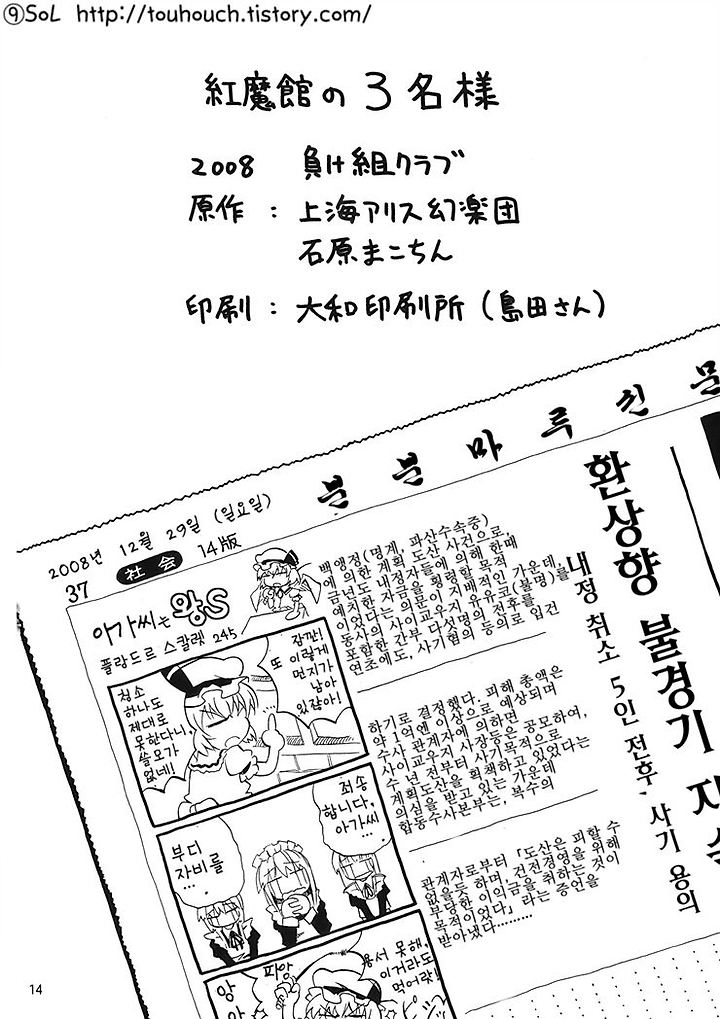 ⑨SoL http://touhouch.tistory.com/
紅魔館の3名様
2008 負け組クラブ
原作 : 上海アリス幻楽団
石原まこちん
印刷 : 大和印刷所 (島田さん)
분분마루신문
2008년 12월 29일 (일요일)
37 社会 14版
환상향 불경기 지속
내정 취소 5인 전후, 사기 용의
백앵정(명계, 파산수속중)
에 의한 계획 도산 사건으로,
금년도 내정자들에 의해 한때
예치한 자금을 횡령할 목적
이었다는 의문이 지배적인 가운데,
동사의 사이교우지 유유코(불명)를
포함한 간부 다섯명의 전후를,
연초에도, 사기혐의 등의로 입건
하기로 결정했다. 피해 총액은
약 1억엔 이상으로 예상되며
수사 관계자에 의하면
사이교우지 사장등은 공모하여,
수 년 전부터 사기목적으로
계획도산을 획책하고 있었다는
의심을 받고 있는 가운데
합동수사본부는, 복수의
관계자로부터 「도산은 피할 수
없을듯 하며, 건전경영을 위해
부당한 이익금을 취하는 것이
목적이었다」 라는 증언을
받아냈다………
아가씨는 왕S
플랑드르 스칼렛 245
잠깐!
또 이렇게
먼지가
남아
있잖아!
청소
하나도
제대로
못한다니,
쓸모가
없네!
죄송
합니다,
아가씨
부디
자비를
…
용서 못해,
이거라도
먹어랏!
피앙
앙
14